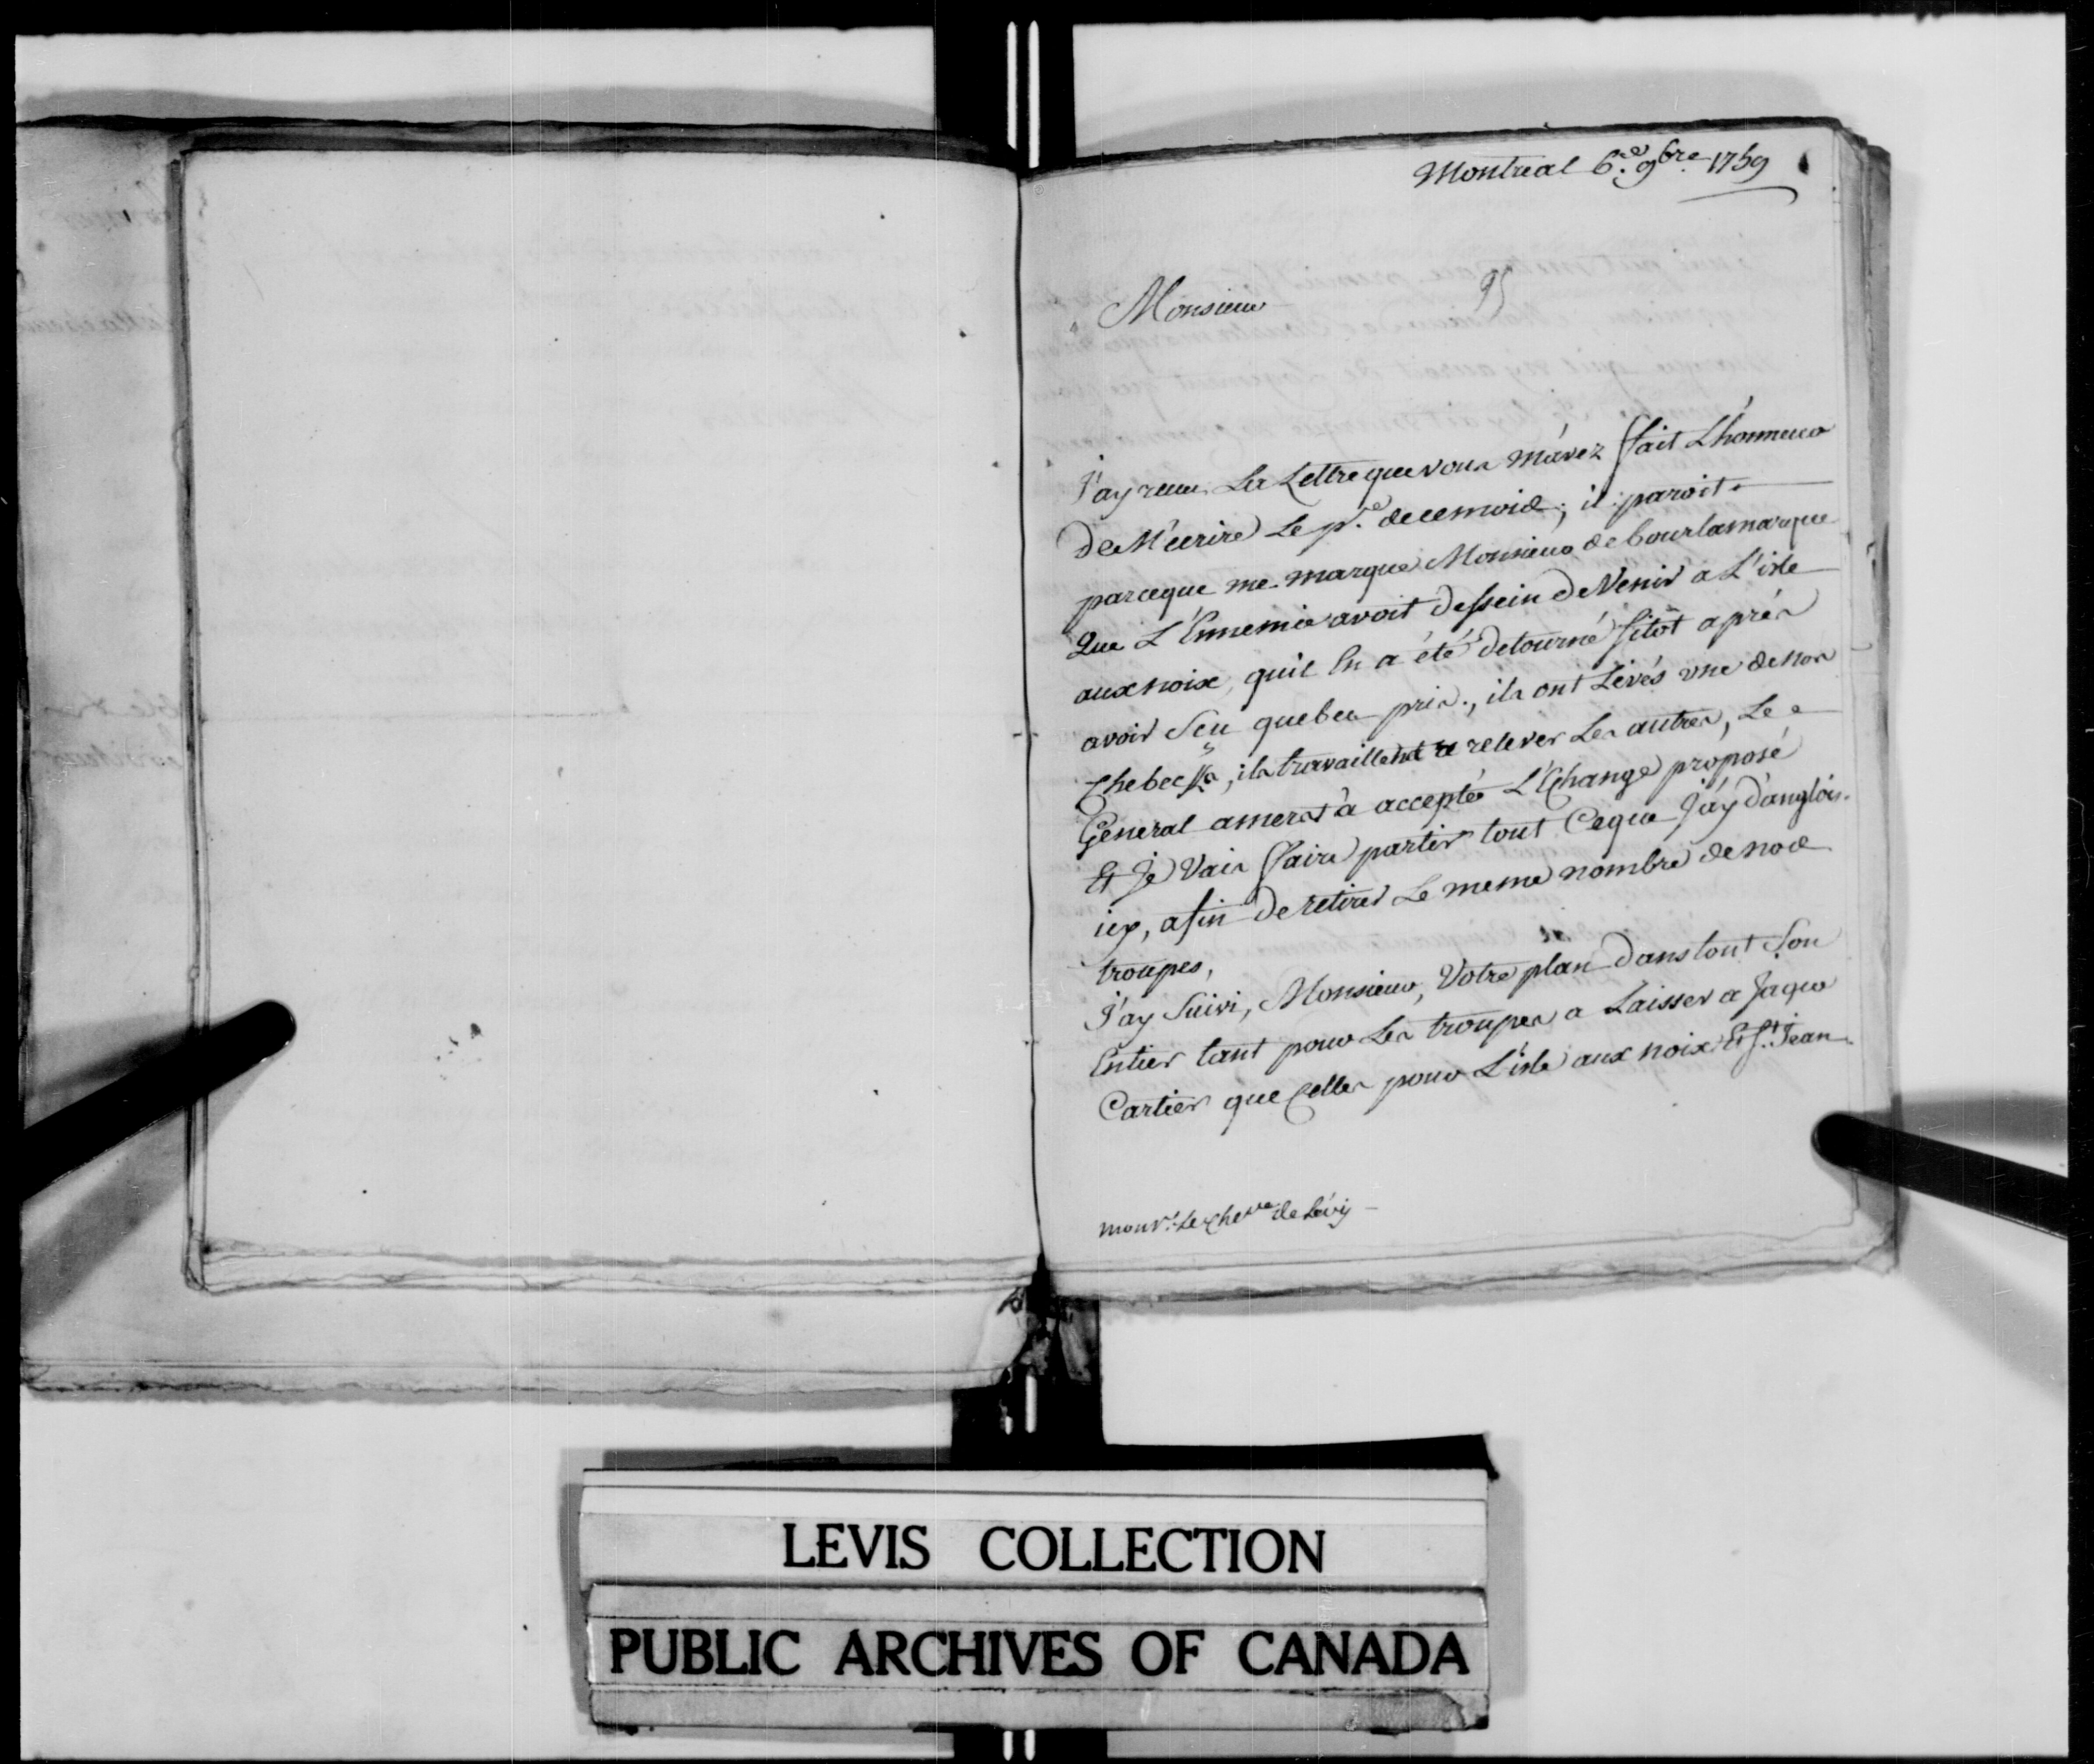 Montreal 6.e 9bre 1759
95
Monsieur
J'ay recu La Lettre que vous m'avez fait L'honneur
De M'ecrire Le p.e de ce mois; il paroit
par ce que me marque Monsieur de bourlamarque
Que L'Ennemie avoit dessein de Venir a L'isle
aux noix, quil En a été detourné sitôt aprés
avoir Scu quebec pris., ils ont Levés une de nos
Chebecks, ils travaillent a relever Les autres, Le
General amerst à acceptée L'Echange proposé
Et Je Vais faire partir tout Ceque J'ay d'anglois.
icy, afin De retirer Le meme nombre de nos
troupes,
J'ay Suivi, Monsieur, Votre plan dans tout Son
Entier tant pour Les troupes a Laisser a Jaque
Cartier que Celles pour L'isle aux noix Et St. Jean
monsr. Le Cher de Lévis
LEVIS COLLECTION
PUBLIC ARCHIVES OF CANADA